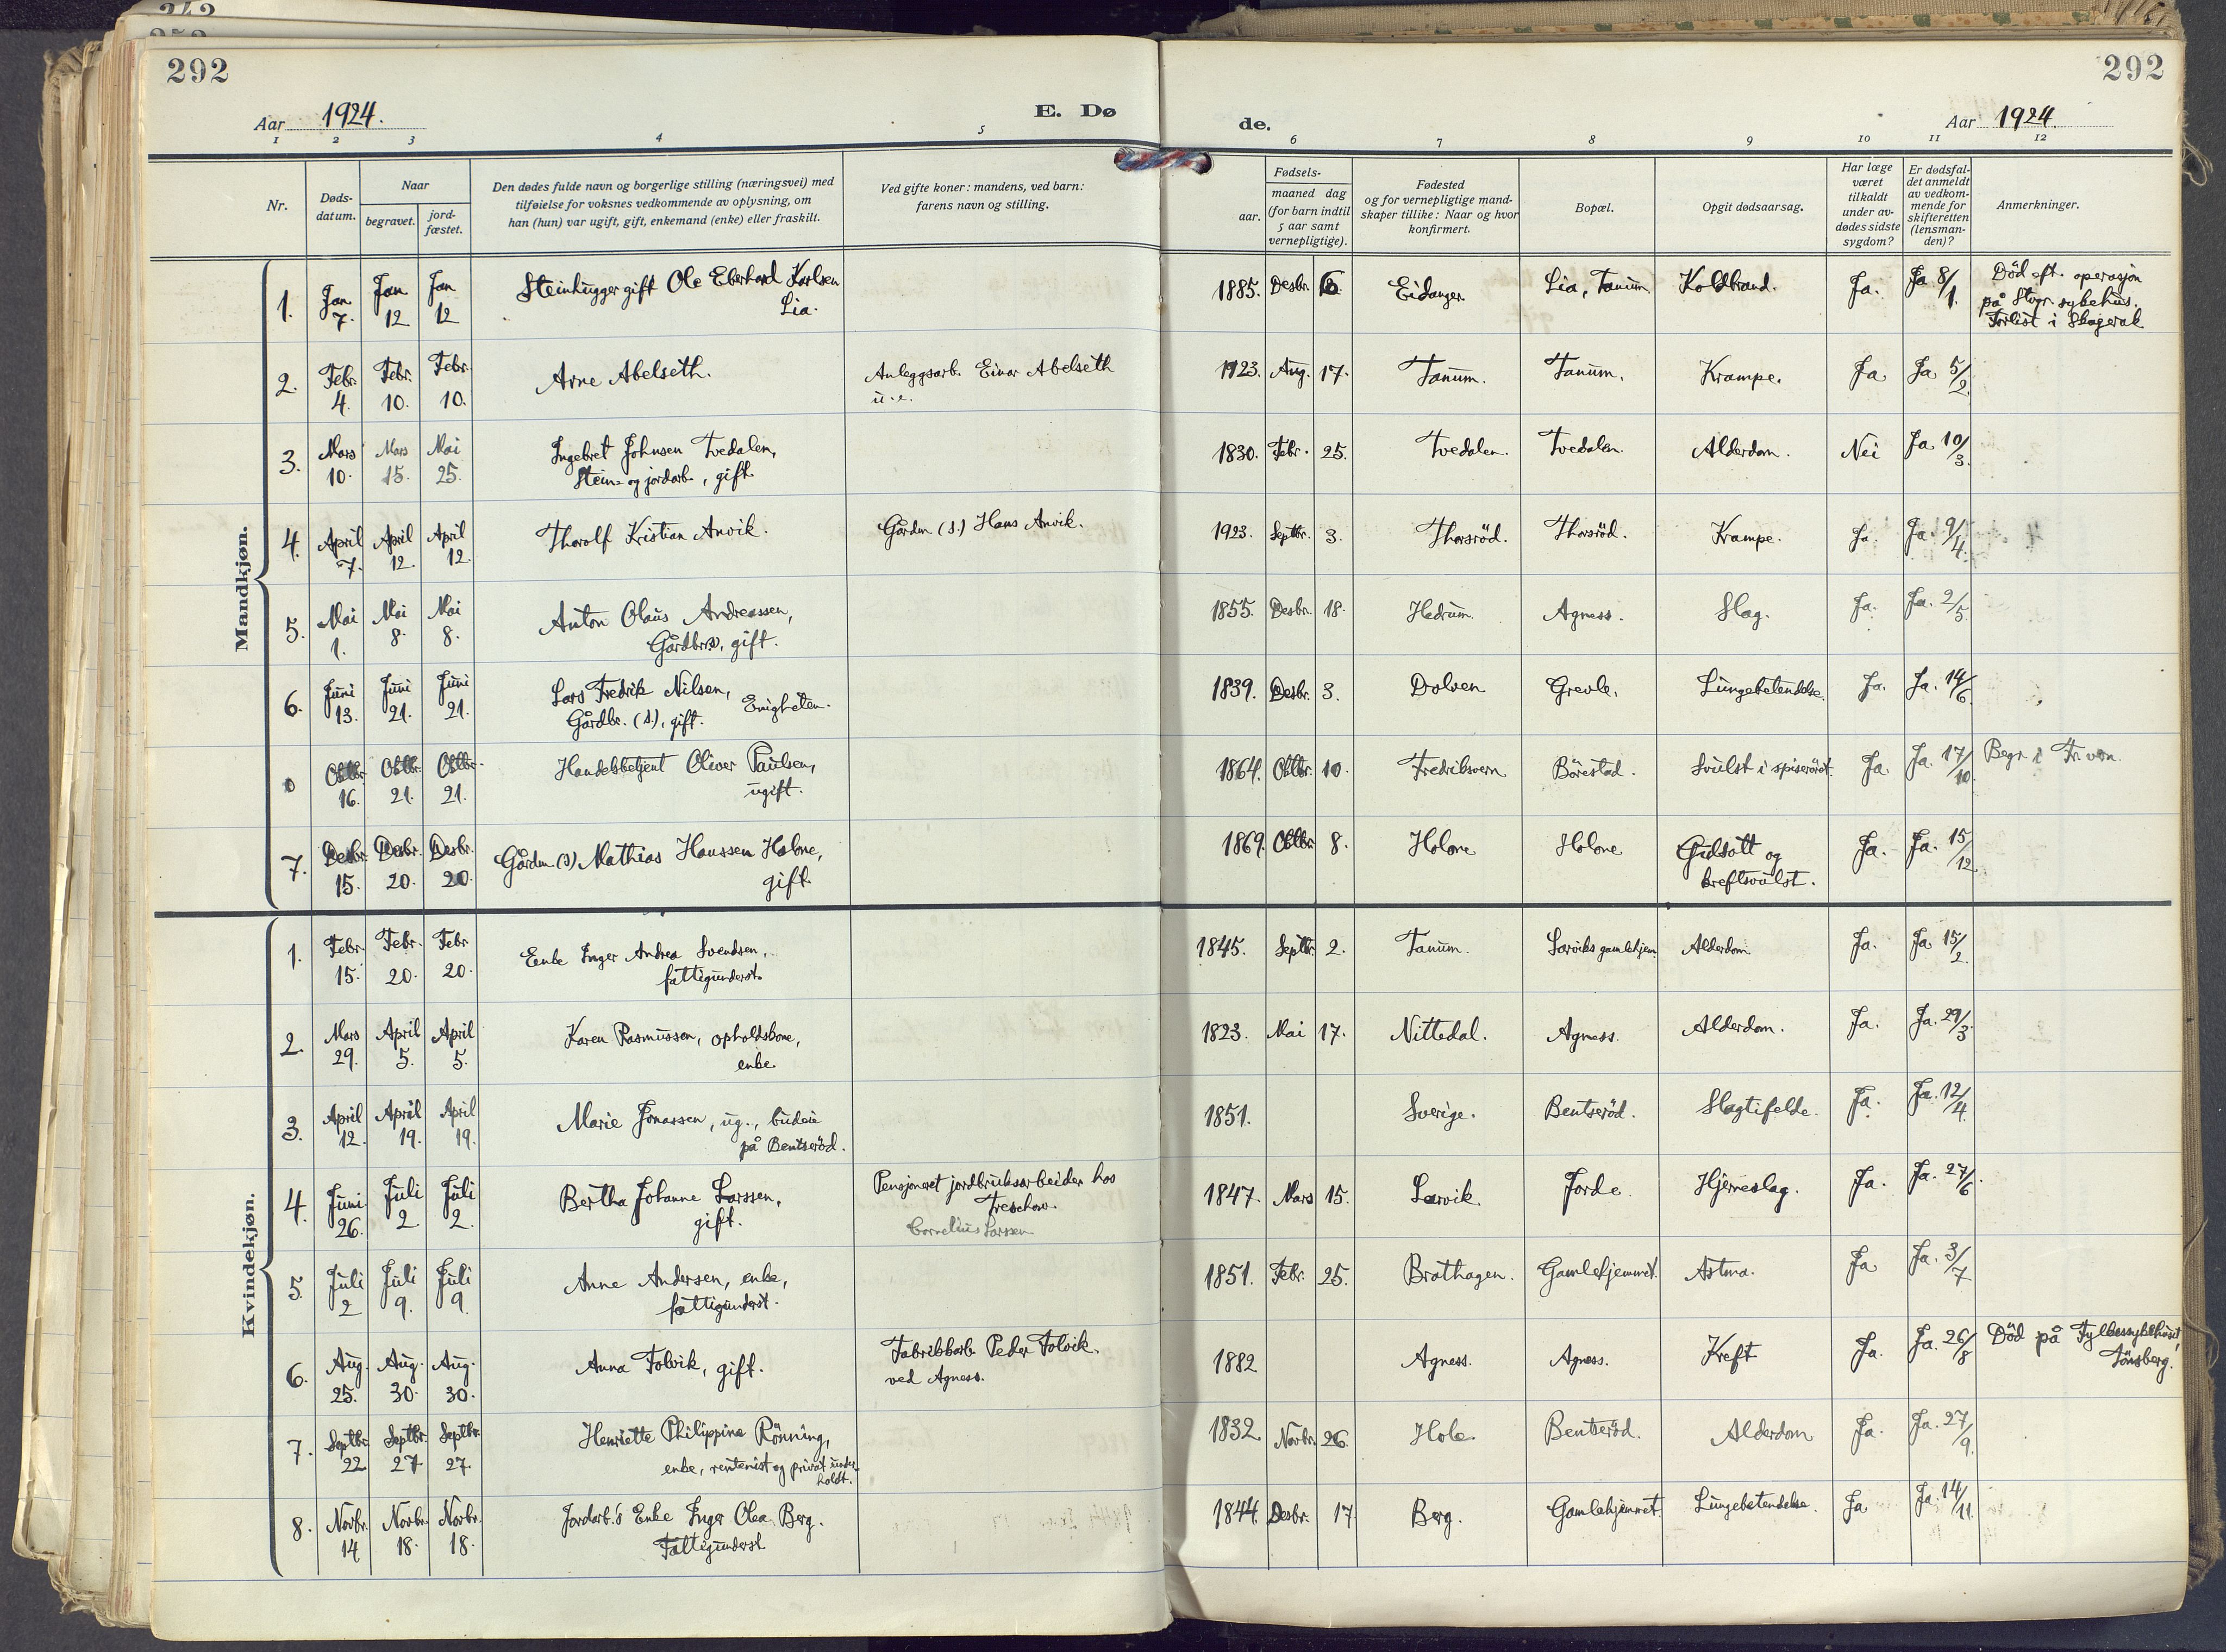 292
292
Aar 1924.
E. Dø
de.
Aar 1924.
1 2 3 4 5 6 7 8 9 10 11 12
Nr.
Døds-
datum.
Naar
begravet.
jord-
fæstet.
Den dødes fulde navn og borgerlige stilling (næringsvei) med
tilføielse for voksnes vedkommende av oplysning, om
han (hun) var ugift, gift, enkemand (enke) eller fraskilt.
Ved gifte koner: mandens, ved barn:
farens navn og stilling.
Fødsels-
aar.
maaned dag
(for barn indtil
5 aar samt
vernepligtige).
Fødested
og for vernepligtige mand-
skaper tillike: Naar og hvor
konfirmert.
Bopæl.
Opgit dødsaarsag.
Har læge
været
tilkaldt
under av-
dødes sidste
sygdom?
Er dødsfal-
det anmeldt
av vedkom-
mende for
skifteretten
(lensman-
den)?
Anmerkninger.
Mandkjøn.
1. Jan 7. Jan 12 Jan 12 Steinhugger gift Ole Eberhard Karlsen
Lia. 1885. Desbr. 6. Eidanger Lia, Tanum. Koldbrand. Ja. Ja. 8/1. Död eft. operasjon
på Stvgr. sykehus.
Forlist i Skagerak
2. Febr. 4. Febr. 10. Febr. 10. Arne Abelseth. Anleggsarb. Einar Abelseth
u. e. 1923. Aug. 17. Tanum. Tanum. Krampe. Ja Ja 5/2.
3. Mars 10. Mars 15. Mai 25. Ingebret Johnsen Tvedalen,
Stein- og jordarb., gift. 1830. Febr. 25. Tvedalen. Tvedalen. Alderdom. Nei Ja 10/3.
4. April 7. April 12. April 12. Thorolf Kristian Anvik. Gårdm. (s.) Hans Anvik. 1923. Septbr. 3. Thorsröd. Thorsröd. Krampe. Ja. Ja. 9/4.
5. Mai 1. Mai 8. Mai 8. Anton Olaus Andreassen,
gift. 1855. Desbr. 18. Hedrum. Agness. Slag. Ja. Ja. 2/5.
6. Juni 13. Juni 21. Juni 21. Lars Fredrik Nilsen, Enigheten.
Gårdbr. (s.), gift. 1839. Desbr. 3. Dolven Grevle. Lungebetendelse. Ja. Ja. 14/6.
0 Oktbr. 16. Oktbr. 21. Oktbr. 21. Handelsbetjent Oliver Paulsen,
ugift. 1864. Oktbr. 10. Fredriksvern Börestad. Svulst i spiseröret. Ja Ja. 17/10. Begr. i Fr.vern.
7. Desbr. 15. Desbr. 20. Desbr. 20. Gårdm. (s) Mathias Hanssen Holone,
gift. 1869. Oktbr. 8. Holone Holone Gulsott og
kreftsvulst. Ja. Ja. 15/12
Kvindekjøn.
1. Febr. 15. Febr. 20. Febr. 20. Enke Inger Andrea Svendsen,
fattigunderst. 1845. Septbr. 2. Tanum. Larviks gamlehjem. Alderdom Ja. Ja 15/2.
2. Mars 29. April 5. April 5. Karen Rasmussen, opholdskone,
enke. 1823. Mai 17. Nittedal. Agness. Alderdom. Ja. Ja. 29/3.
3. April 12. April 19. April 19. Marie Jonassen, ug., budeie
på Bentseröd. 1851. Sverige. Bentseröd. Slagtifelde. Ja. Ja. 12/4.
4. Juni 26. Juli 2 Juli 2. Bertha Johanne Larssen,
gift. Pensjoneret jordbruksarbeider hos
Treschow.
Cornelius Larssen 1847. Mars 15. Larvik. Jorde. Hjerneslag. Ja. Ja. 27/6.
5. Juli 2 Juli 9. Juli 9. Anne Andersen, enke,
fattigunderst. 1851. Febr. 25. Brathagen. Gamlehjemmet. Astma. Ja Ja. 3/7
6. Aug. 25. Aug. 30. Aug. 30. Anna Folvik, gift. Fabrikkarb. Peder Folvik.
ved Agness. 1882 Agness. Agness. Kreft Ja. Ja. 26/8 Död på Fylkessykehuset,
Tönsberg.
7. Septbr. 22 Septbr. 27 Septbr. 27. Henriette Philippine Rönning,
enke, rentenist og privat under-
holdt. 1832 Novbr. 26. Hole Bentseröd. Alderdom Ja. Ja. 27/9.
8. Novbr. 14 Novbr. 18. Novbr. 18. Jordarb.'s Enke Inger Olea Berg.
Fattigunderst. 1844. Desbr. 17 Berg. Gamlehjemmet. Lungebetendelse. Ja Ja. 14/11.